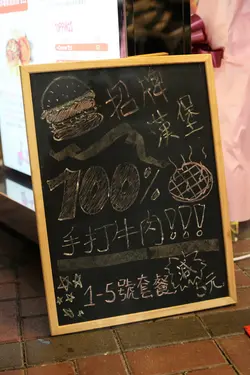 招牌
漢堡
100%
手打牛肉!!!
1-5號套餐減5元